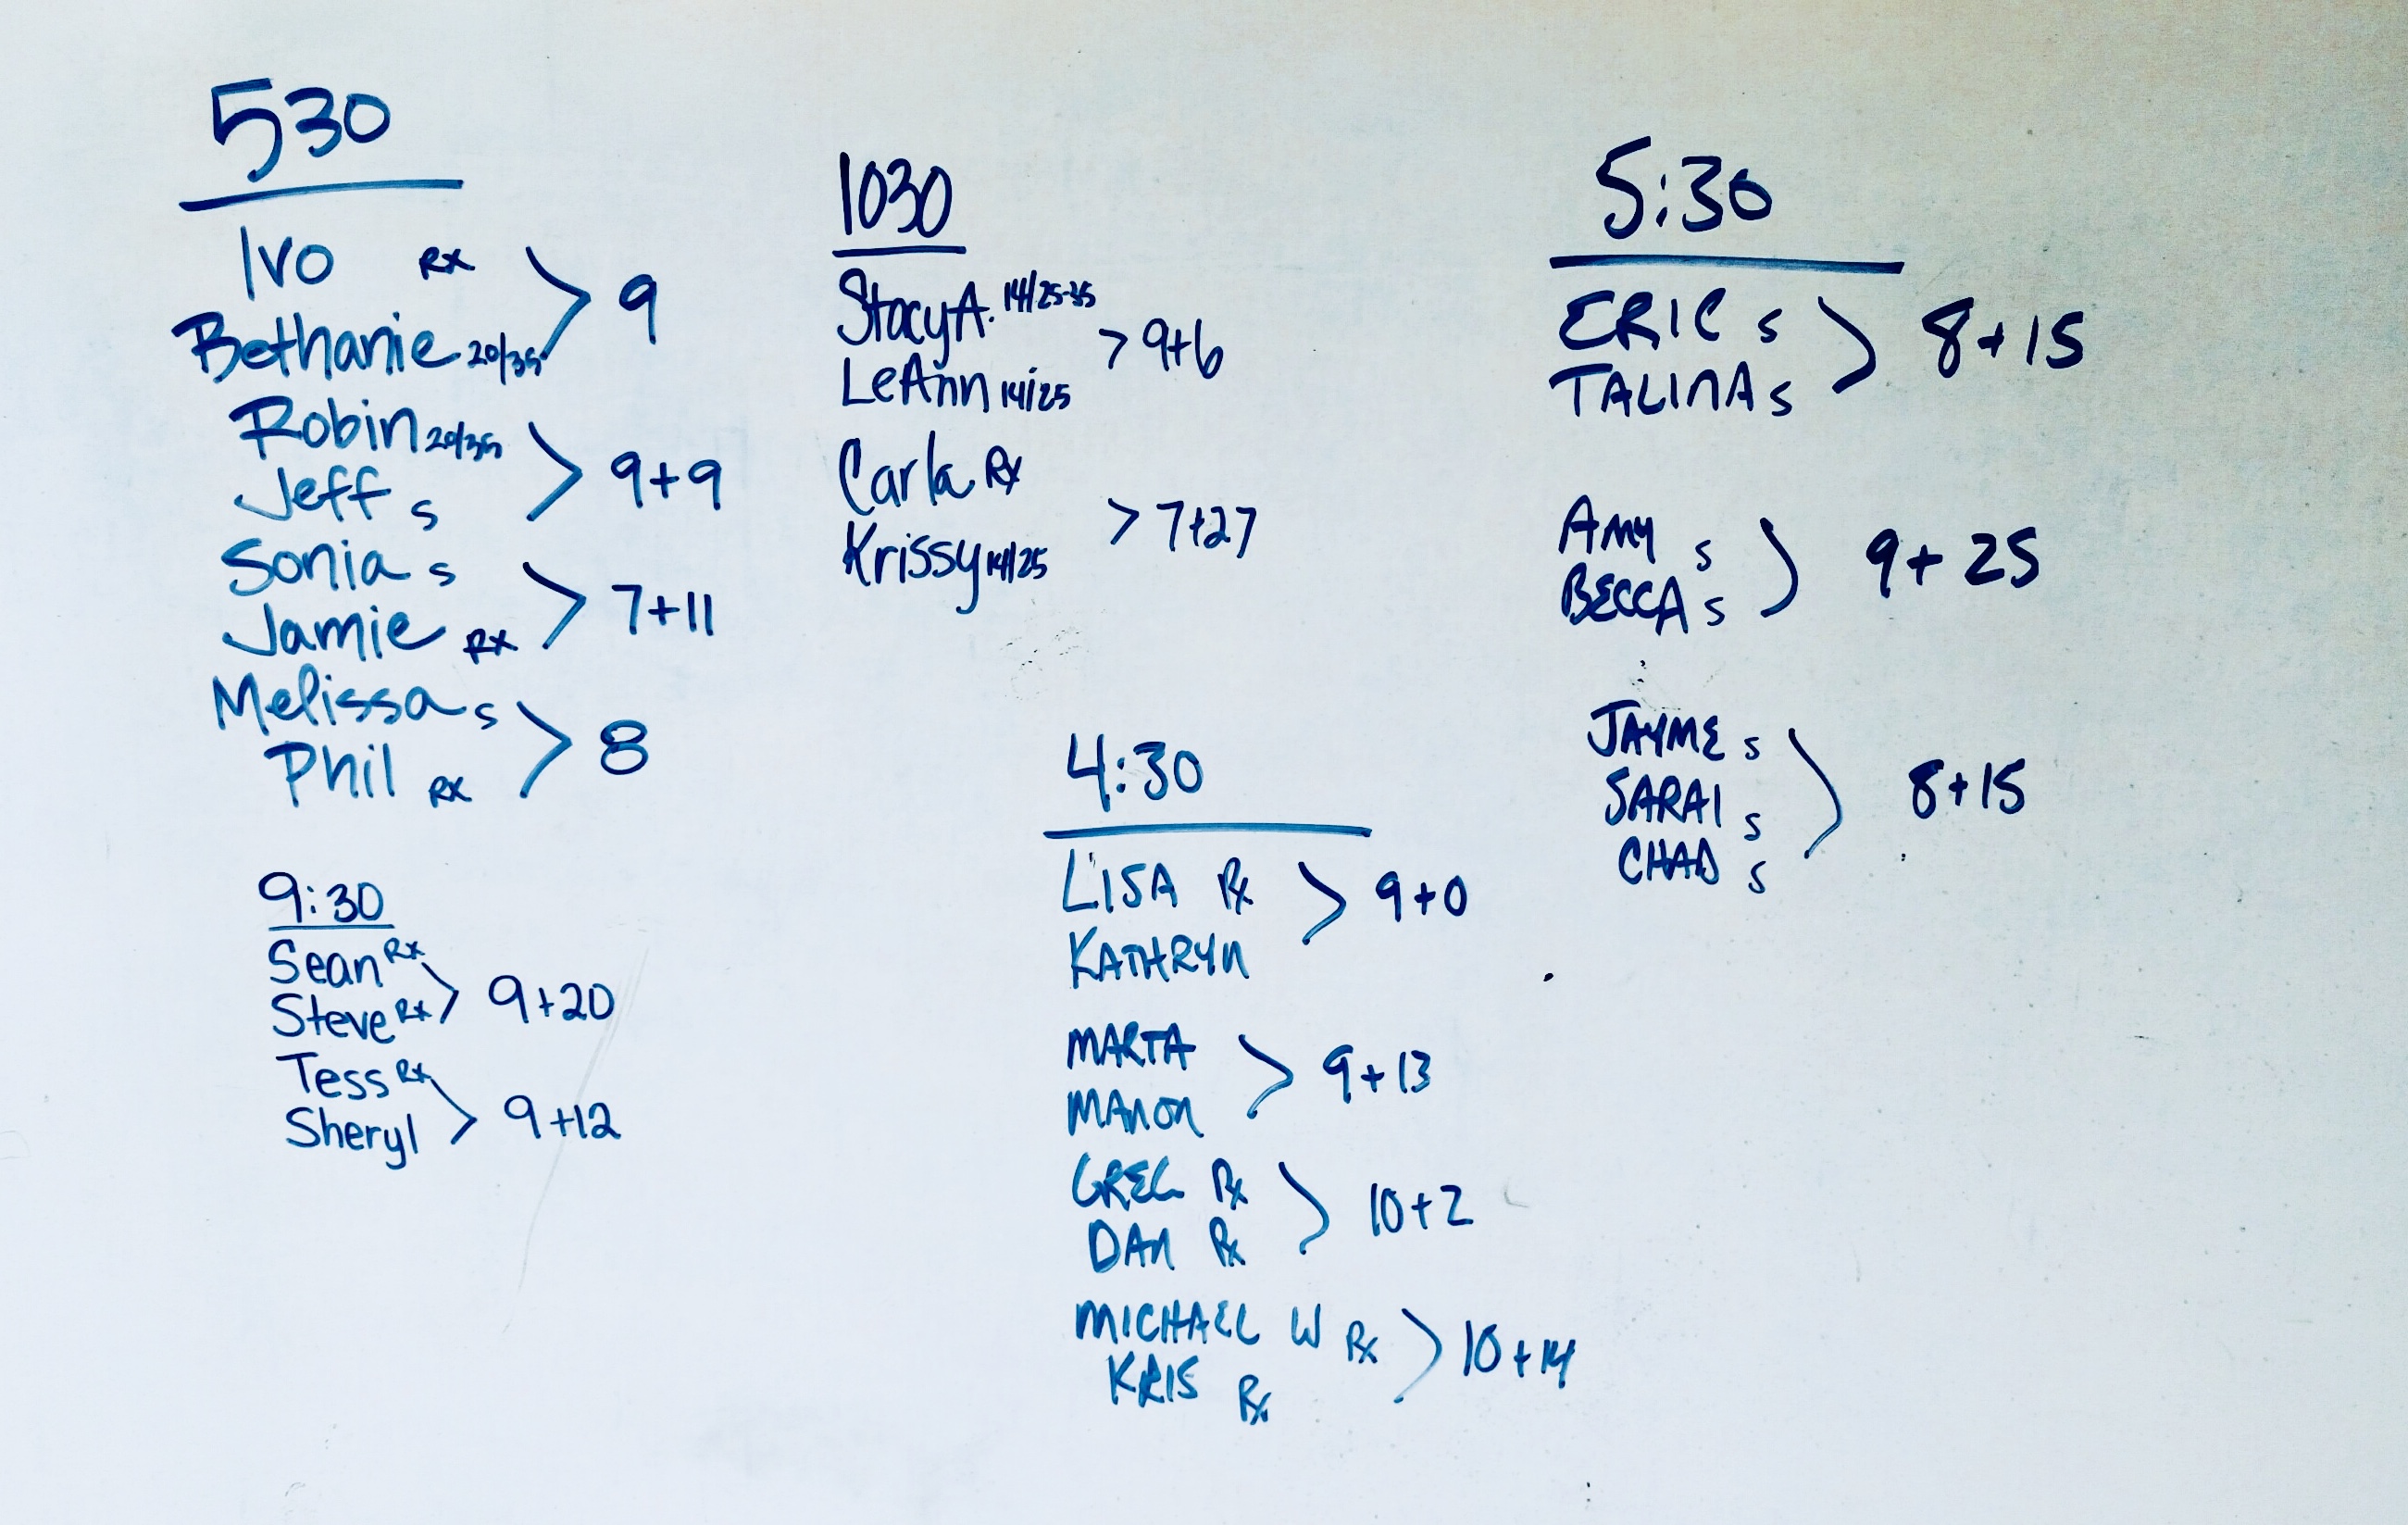 530
Ivo RX
Bethanie 20/35 > 9
Robin 20/35
Jeff S > 9+9
Sonia S
Jamie RX > 7+11
Melissa S
Phil RX > 8
9:30
Sean RX
Steve RX > 9+20
Tess RX
Sheryl > 9+12
1030
Stacy A. 14/25-35
LeAnn 14/25 > 9+6
Carla RX
Krissy 14/25 > 7+27
4:30
LISA RX
KATHRYN > 9+0
MARTA
MANON > 9+13
GREG RX
DAN RX > 10+2
MICHAEL W RX
KRIS RX > 10+14
5:30
ERIC S
TALINA S > 8+15
AMY S
BECCA S > 9+25
JAYME S
SARAI S > 8+15
CHAD S